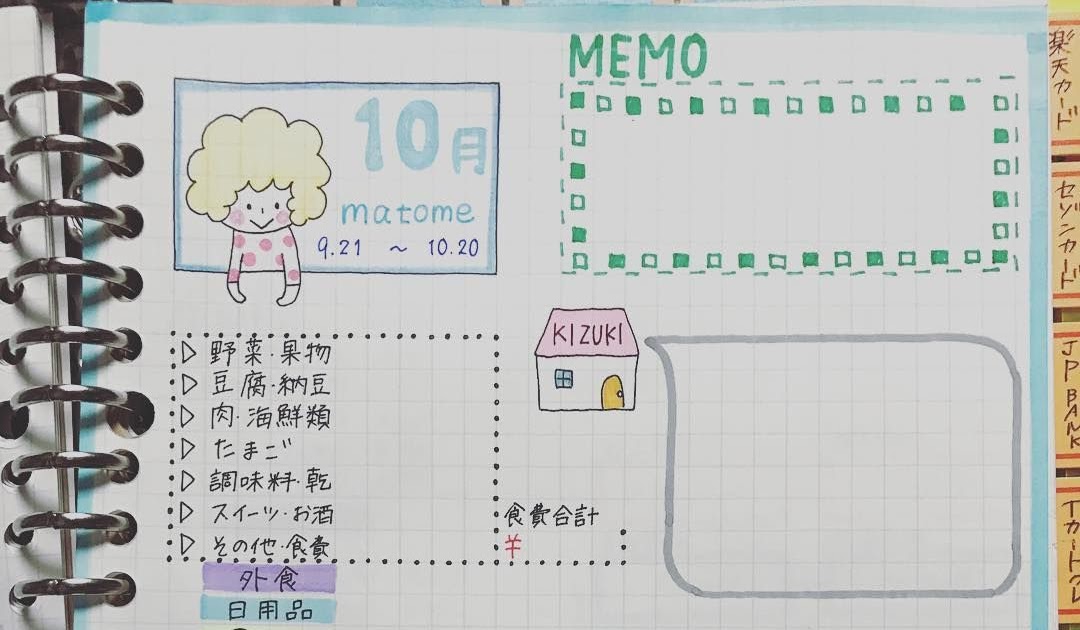 10月
matome
9.21 ~ 10.20
MEMO
▷ 野菜·果物
▷ 豆腐·納豆
▷ 肉·海鮮類
▷ たまご
▷ 調味料·乾
▷ スイーツ·お酒
▷ その他·食費
外食
日用品
食費合計
¥
KIZUKI
楽天カード
セゾンカード
JP BANK
Tカード